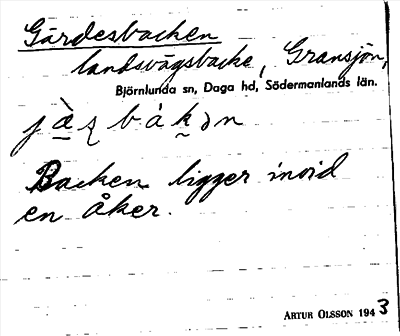 Gärdesbacken
landsvägsbacke, Gransjön,
Björnlunda sn, Daga hd, Södermanlands län.
Backen ligger invid
en åker.
ARTUR OLSSON 1943